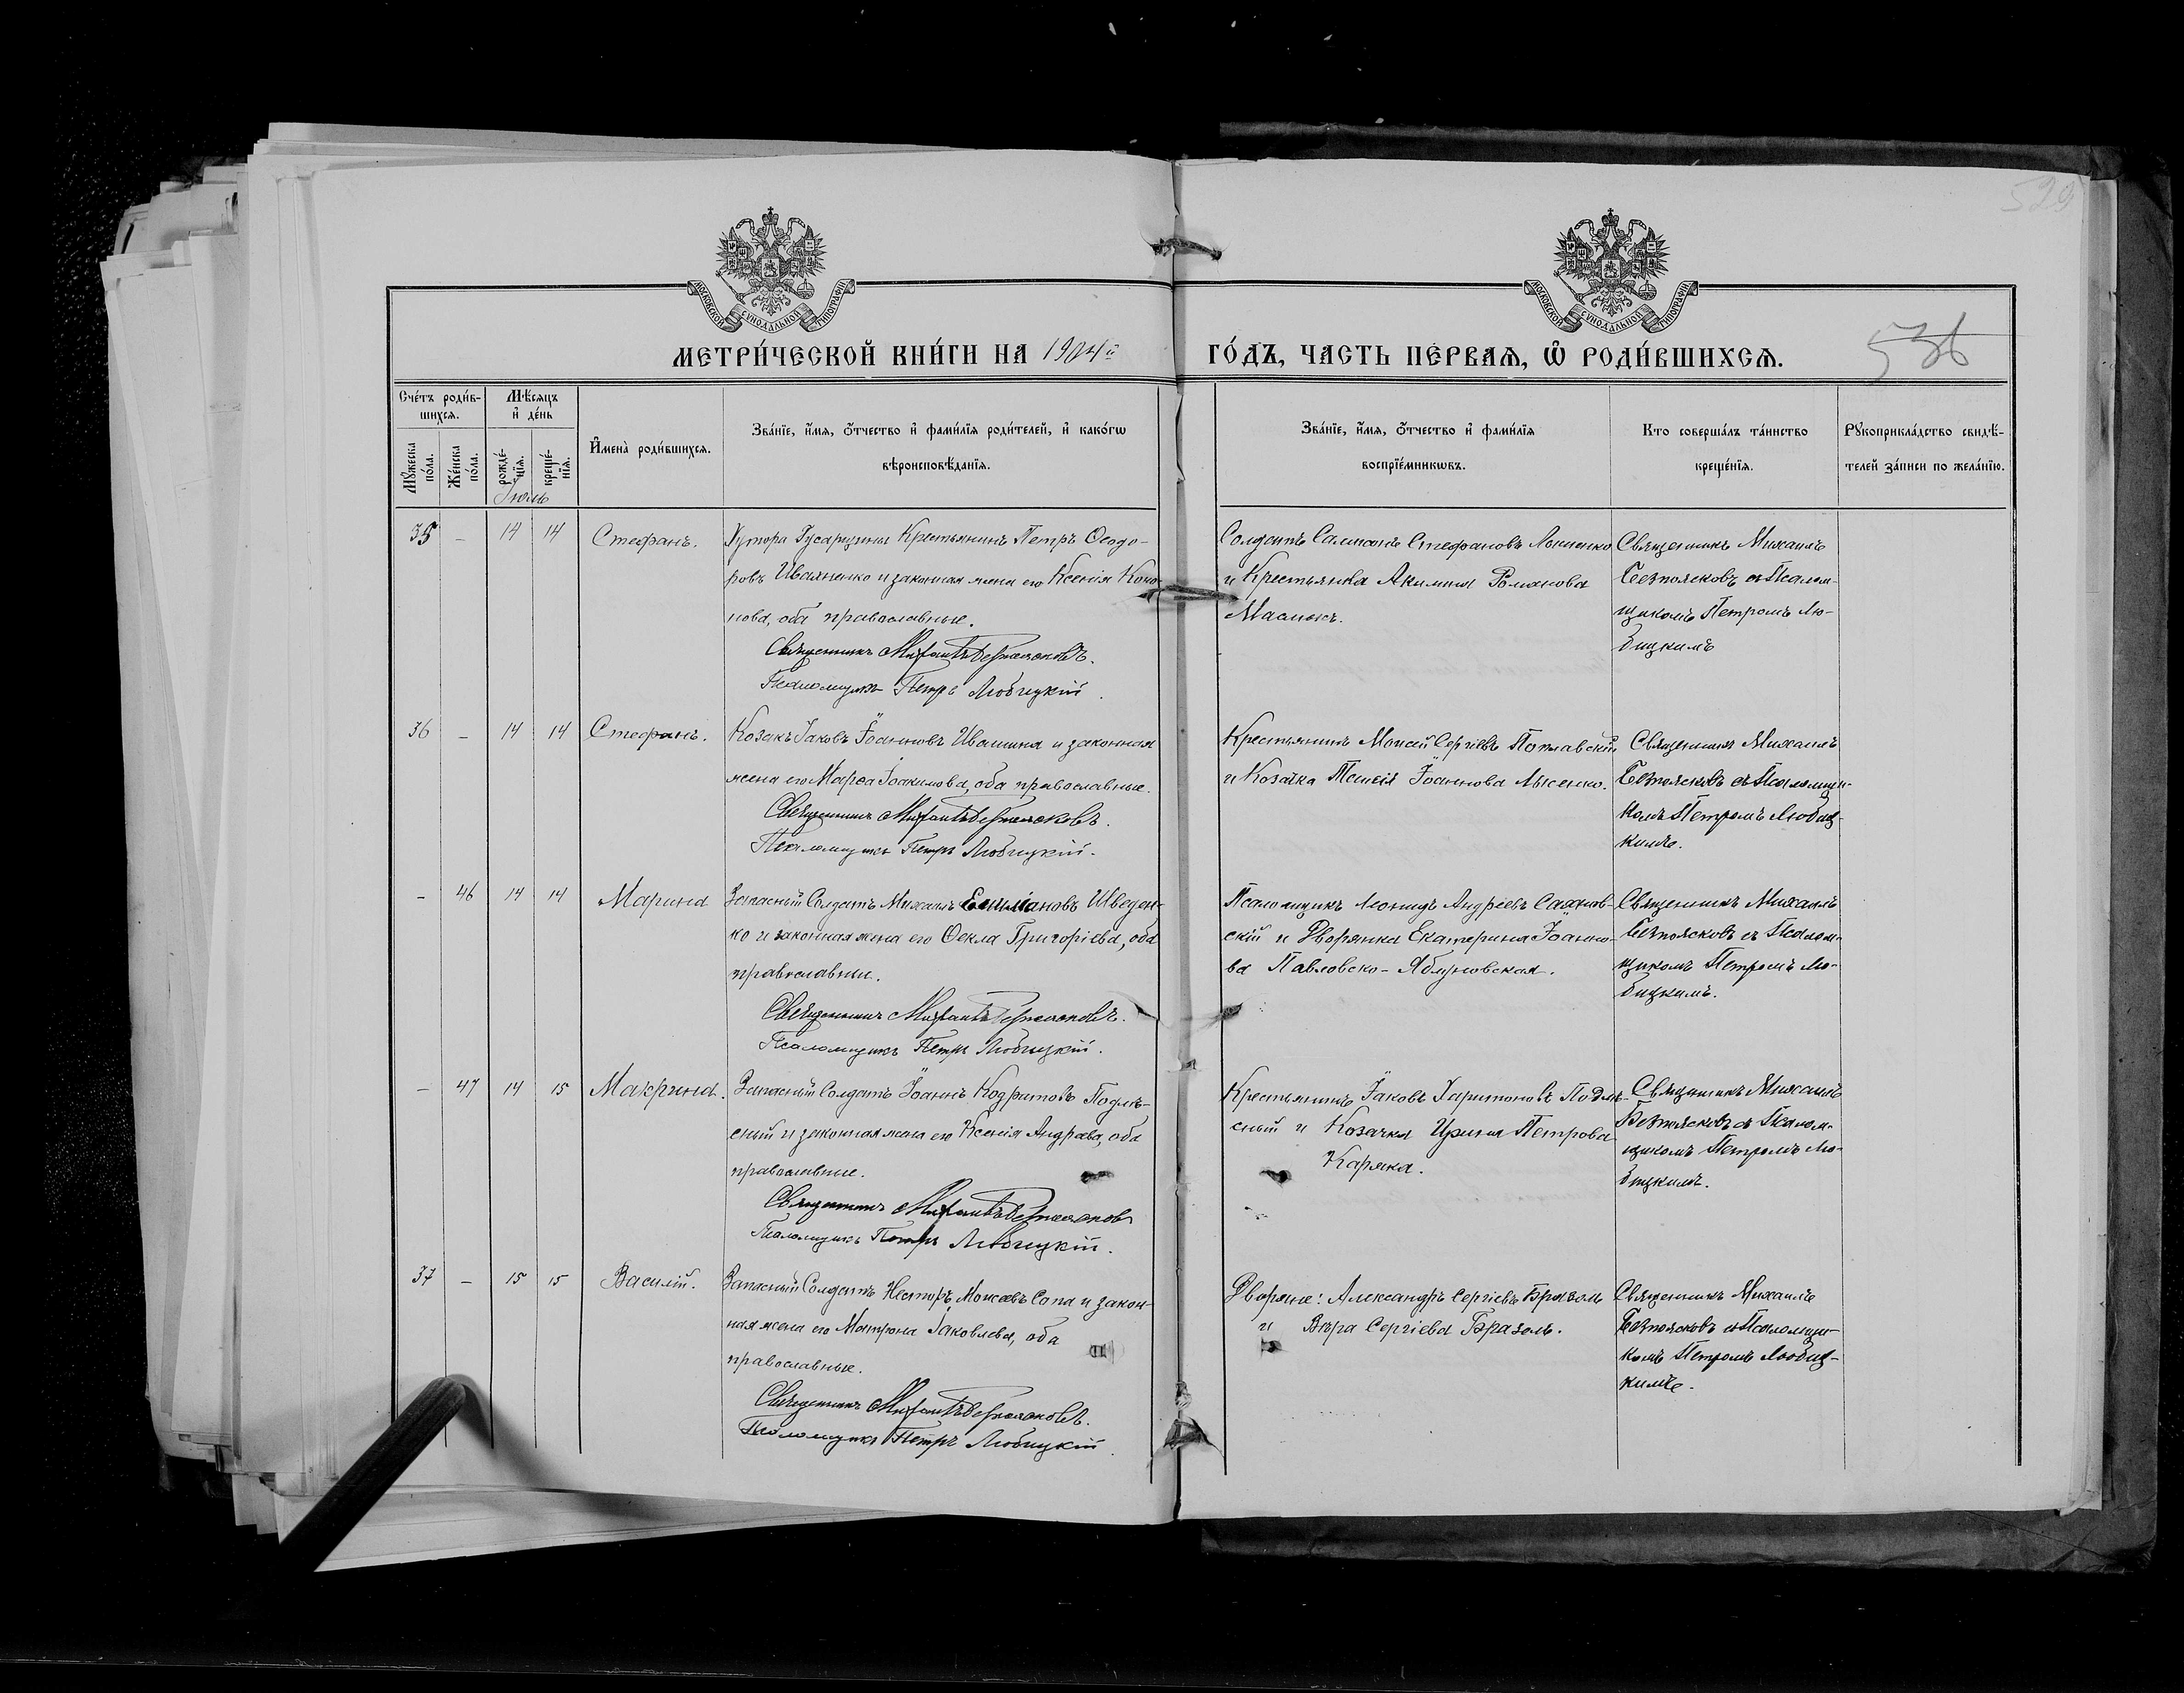 529
МОСКОВСКОЙ СѴНОДАЛЬНОЙ ТИПОГРАФІИ
МОСКОВСКОЙ СѴНОДАЛЬНОЙ ТИПОГРАФІИ
МЕТРИ́ЧЕСКОЙ КНИ́ГИ НА 1904й ГО́ДЪ, ЧАСТЬ ПЕ́РВАѦ, Ѡ РОДИ́ВШИХСѦ.
536
Сче́тъ роди́в-
шихсѧ.
Мѣ́сяцъ
и҆ де́нь
Мꙋ́жеска
по́ла.
Же́нска
по́ла.
рожде́-
нїѧ.
креще́-
нїѧ.
И҆мена̀ роди́вшихсѧ.
Зва́нїе, и҆́мѧ, ѻ҆́тчество и҆ фами́лїѧ роди́телей, и҆ како́гѡ
вѣроисповѣ́данїѧ.
Зва́нїе, и҆́мѧ, ѻ҆́тчество и҆ фами́лїѧ
воспрїе́мникѡвъ.
Кто соверша́лъ та́инство
креще́нїѧ.
Рꙋкоприкла́дство свидѣ́-
телей за́писи по жела́нїю.
Іюль
35 - 14 14 Стефанъ.
Хутора Гусарщины Крестьянинъ Петръ Ѳеодо-
ровъ Иваненко и законная жена его Ксенія Коно-
нова, оба православные.
Священникъ Михаилъ Безпоясковъ.
Псаломщикъ Петръ Любицкій.
Солдатъ Сампсонъ Стефановъ
и Крестьянка Акилина Романова
Маслюкъ.
Священникъ Михаилъ
Безпоясковъ съ Псалом-
щикомъ Петромъ Лю-
бицкимъ
36 - 14 14 Стефанъ.
Козакъ Іаковъ Іоанновъ Ивашина и законная
жена его Марѳа Іоакимова, оба православные.
Священникъ Михаилъ Безпоясковъ.
Псаломщикъ Петръ Любицкій.
Крестьянинъ Моисей Сергіевъ Поплавскій
и Козачка Таисія Іоаннова Лысенко.
Священникъ Михаилъ
Безпоясковъ съ Псаломщи-
комъ Петромъ Любиц-
кимъ.
- 46 14 14 Марина
Запасный Солдатъ Михаилъ Емиліановъ Шведен-
ко и законная жена его Ѳекла Григоріева, оба
православные.
Священникъ Михаилъ Безпоясковъ.
Псаломщикъ Петръ Любицкій.
Псаломщикъ Леонидъ Андреевъ
скій и Дворянка Екатерина Іоанно-
ва Павловско-Яблуновская.
Священникъ Михаилъ
Безпоясковъ съ Псалом-
щикомъ Петромъ Лю-
бицкимъ.
- 47 14 15 Макрина.
Запасный Солдатъ Іоаннъ Кодратовъ Подлѣ-
сный и законная жена его Ксенія Андрева, оба
православные.
Священникъ Михаилъ Безпоясковъ
Псаломщикъ Петръ Любицкій.
Крестьянинъ Іаковъ Харитоновъ Подлѣ-
сный и Козачка Ирина Петрова
Каряка.
Священникъ Михаилъ
Безпоясковъ съ Псалом-
щикомъ Петромъ Лю-
бицкимъ.
37 - 15 15 Василій.
Запасный Солдатъ Несторъ Моисеевъ Сопа и закон-
ная жена его Матрона Іаковлева, оба
православные.
Священникъ Михаилъ Безпоясковъ.
Псаломщикъ Петръ Любицкій
Дворяне: Александръ Сергіевъ Бразоль
и Вѣра Сергіева Бразоль.
Священникъ Михаилъ
Безпоясковъ съ Псаломщи-
комъ Петромъ Любиц-
кимъ.